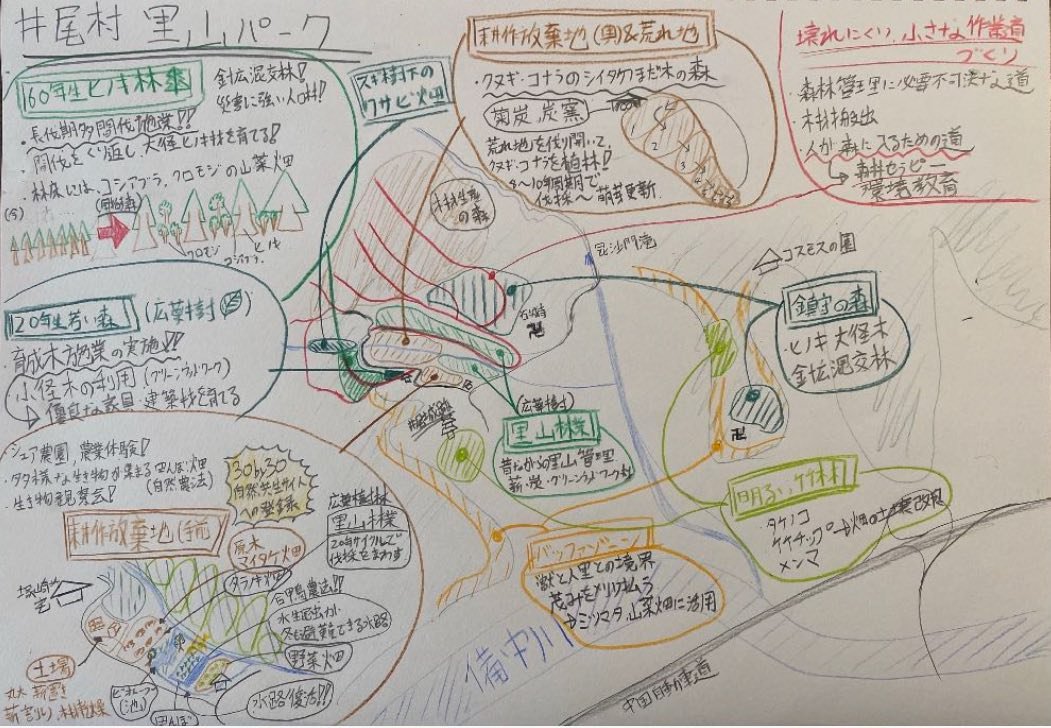 井尾村 里山パーク
60年生ヒノキ林
針広混交林!
災害に強い人工林!
・長伐期多間伐施業!!
・間伐をくり返し、大径ヒノキ材を育てる!
・林床には、コシアブラ、クロモジの山菜畑
クロモジ
コシアブラ
ヒノキ
スギ樹下の
ワサビ畑
耕作放棄地(奥)&荒れ地
・クヌギ・コナラのシイタケほだ木の森
菊炭、炭窯
荒れ地を伐り開いて、
クヌギ・コナラを植林!
8〜10年周期で
伐採〜萌芽更新
1
2
3
壊れにくい、小さな作業道
づくり
・森林管理に必要不可欠な道
・木材搬出
・人が森に入るための道
森林セラピー
環境教育
木材生産
の森
毘沙門滝
コスモスの園
20年生若い森
(広葉樹)
・育成木施業の実施!!
・小径木の利用(グリーンウッドワーク)
優良な家具・建築材を育てる
鎮守の森
・ヒノキ大径木
・針広混交林
(広葉樹)
里山林業
昔ながらの里山管理
薪・炭・グリーンウッドワーク材
明るい竹林
・タケノコ
・竹チップ→畑の土壌改良
・メンマ
バッファゾーン
獣と人里との境界
茂みをメリハリ払う
→ミツマタ、山菜畑に活用
シェア農園、農業体験!
・多様な生き物が集まる田んぼ、畑
(自然農法)
・生き物観察会!
30by30
自然共生サイト
への登録
耕作放棄地(手前)
原木
マイタケ畑
タラノキ畑
広葉樹林
里山林業
20年サイクルで
伐採をまわす
合鴨農法!!
水生昆虫が
冬も避難できる水路
野菜畑
水路復活!!
土場
丸太 薪置き
薪割り、木材乾燥
ビオトープ
(池)
田んぼ
備中川
中国自動車道